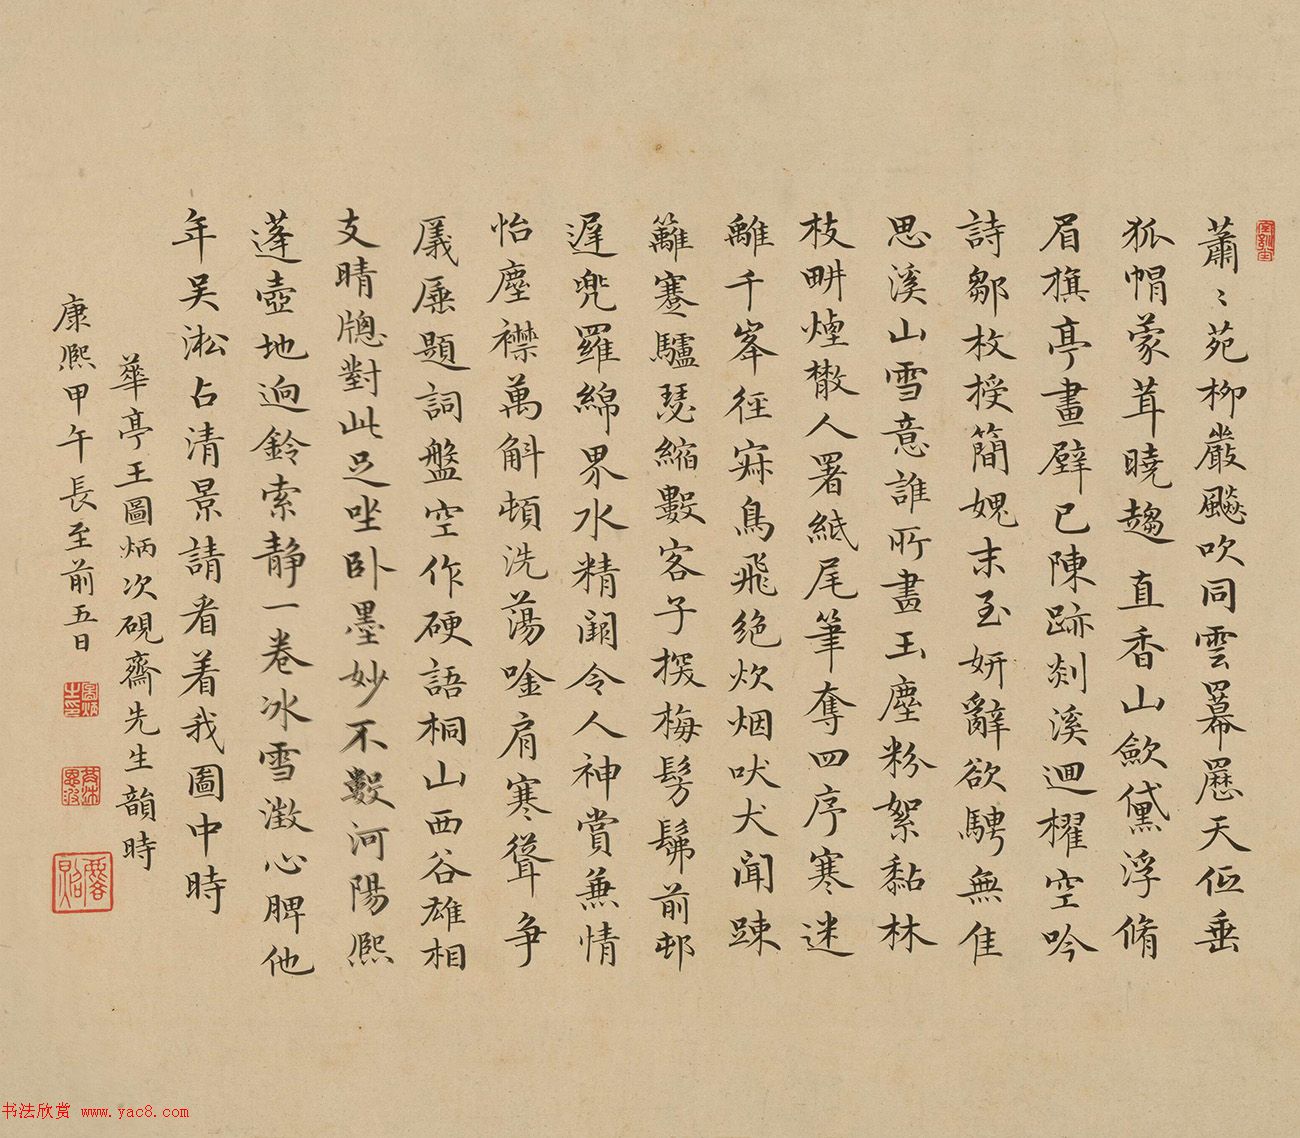 蕭〻苑柳嚴飈吹同雲羃歷天低垂
狐帽蒙茸曉趨直香山歛黛浮脩
眉旗亭畫壁已陳跡剡溪迴櫂空吟
詩鄒枚授簡媿末至妍辭欲騁無佳
思溪山雪意誰所畫玉塵粉絮黏林
枝畊煙散人署紙尾筆奪四序寒迷
離千峯徑寂鳥飛絶炊烟吠犬闻踈
籬蹇驢瑟縮數客子探梅髣髴前邨
遲兜羅綿界水精闕令人神賞兼情
怡塵襟萬斛頓洗蕩唫肩寒聳争
厜㕒題詞盤空作硬語桐山西谷雄相
支晴牕對此足坐卧墨妙不數河陽熙
蓬壺地迥鈴索静一卷冰雪澂心脾他
年吴淞占清景請看着我圖中時
華亭王圖炳次硯齋先生韻時
康熙甲午長至前五日
书法欣赏 www.yac8.com